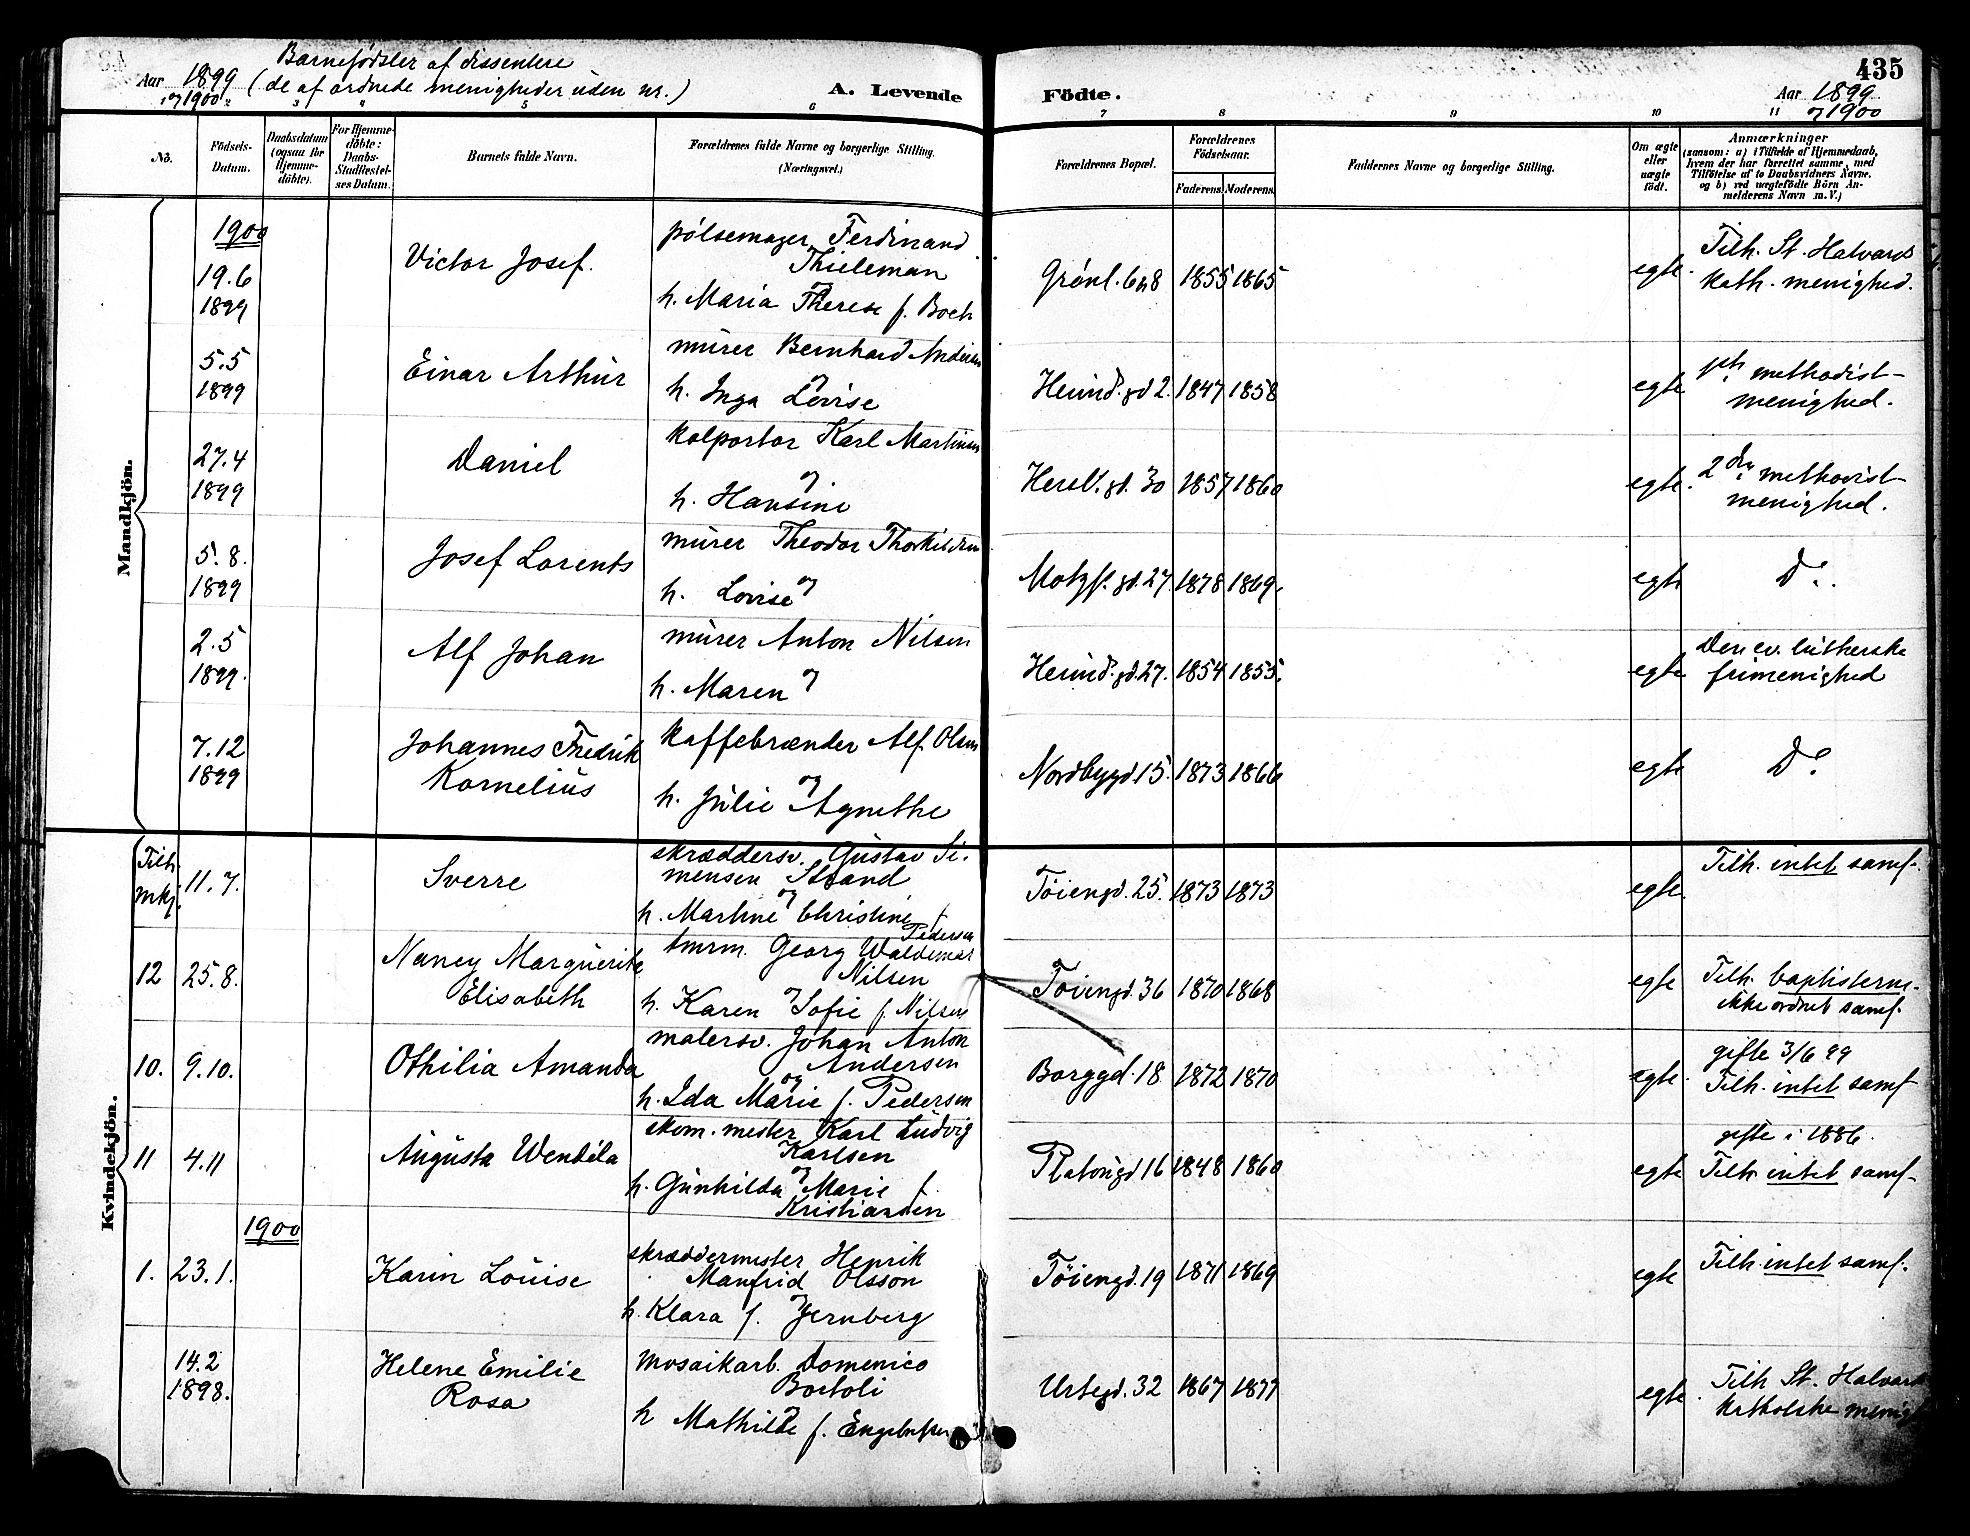 Barnefødsler af dissentere
Aar 1899 (de af ordnede menigheder uden nr.)
og 1900
A. Levende
Födte.
435
Aar 1899
og 1900
3 4 5 6 7 8 9 10 11
No.
Födsels-Datum.
Daabsdatum (ogsaa for Hjemme-döbte).
For Hjemme-döbte: Daabs-Stadfæstel-ses Datum.
Barnets fulde Navn.
Forældrenes fulde Navne og borgerlige Stilling. (Næringsvei.)
Forældrenes Bopæl.
Forældrenes Födselsaar.
Faderens. Moderens.
Faddernes Navne og borgerlige Stilling.
Om ægte eller uægte födt.
Anmærkninger
(saasom: a) i Tilfælde af Hjemmedaab, hvem der har forrettet samme, med Tilföielse af to Daabsvidners Navne, og b) ved uægtefödte Börn An-melderens Navn m. V.)
Mandkjön.
1900
19.6
1899
Victor Josef.
pølsemager Ferdinand
Thieleman
og
h. Maria Therese f. Boch
Grønl. 6 n 8 1855 1865
egte.
Tilh. St. Halvards
kath. menighed.
5.5
1899
Einar Arthur
murer Bernhard Andersen
og
h. Inga Lovise
Heimd. gd 2. 1847 1858
egte
1ste methodist-
menighed.
27.4
1899
Daniel
kolportør Karl Martinsen
og
h. Hansine
Hersl. gd. 30 1857 1860
egte.
2den methodist-
menighed.
5.8.
1899
Josef Lorents
murer Theodor Thorkildsen
og
h. Lovise
Motzf. gd. 27 1878 1869.
egte
Do.
2.5
1899.
Alf Johan
murer Anton Nilsen
og
h. Maren
Heimd. gd. 27. 1854 1855.
egte
Den ev. lutherske
frimenighed
7.12
1899
Johannes Fredrik
Kornelius
kaffebrænder Alf. Olsen
og
h. Julie Agnethe
Nordbygd. 15. 1873 1866
egte
Do
Tilh.
mkj.
11.7.
Sverre
skræddersv. Gustav Si-
mensen Strand
og
h. Martine Christine f.
Pedersen
Tøiengd. 25. 1873 1873
egte.
Tilh. intet samf.
Kvindekjön.
12 25.8.
Nancy Marguerite
Elisabeth
tmrm. Georg Waldemar
Nilsen
og
h. Karen Sofie f. Nilsen
Tøiengd. 36 1870 1868
egte
Tilh. baptisterne.
ikke ordnet samf.
10. 9.10.
Othilia Amanda
malersv. Johan Anton
Andersen
og
h. Ida Marie f. Pedersen
Borggd. 18 1872 1870
egte.
gifte 3/6 99
Tilh. intet samf
11 4.11
Augusta Wendela
skom. mester Karl Ludvig
Karlsen
og
h. Gunhilda Marie f.
Kristiansen
Platousgd 16 1848 1860
egte
gifte i 1886.
Tilh. intet samf.
1900
1. 23.1.
Karin Louise
skræddermester Henrik
Manfrid Olsson
og
h. Klara f. Jernberg
Tøiengd. 19 1871 1869
egte
Tilh intet samf.
14.2
1898.
Helene Emilie
Rosa
mosaikarb. Domenico
Bortoli
og
h Mathilde f. Engebretsen
Urtegd. 32 1867 1877
egte.
Tilh St. Halvards
katholske menigh